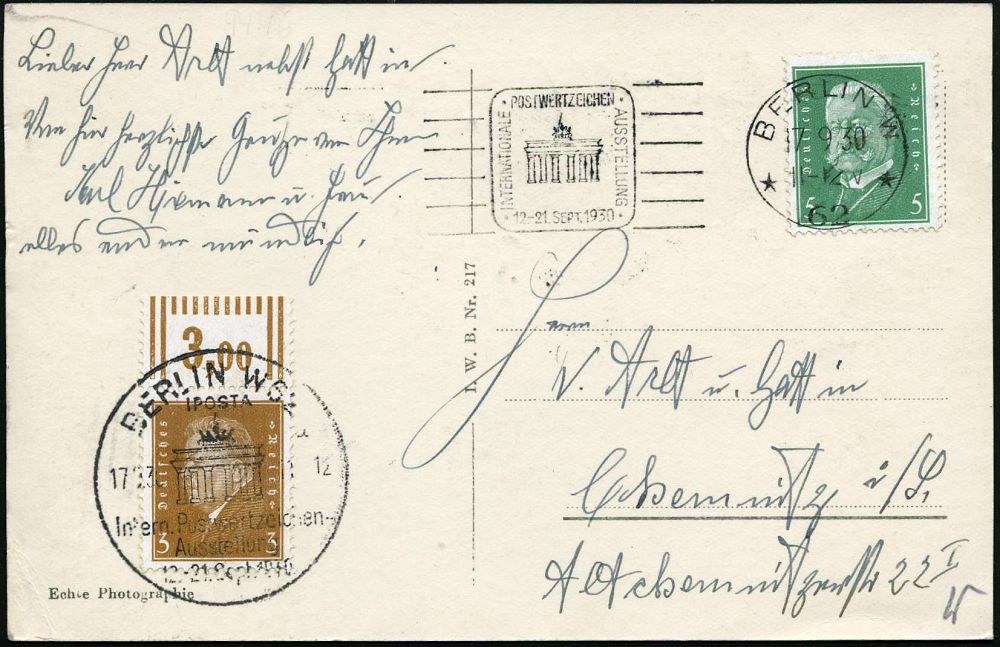 Lieber Herr Arlt nebst Gattin
Von hier herzlichste Grüsse von Ihrem
Karl Hermann u. Frau
alles andere mündlich.
INTERNATIONALE · POSTWERTZEICHEN · AUSSTELLUNG
· 12.-21. SEPT. 1930 ·
BERLIN W
17.9.30
62
Deutsches Reich
5 5
I. W. B. Nr. 217
3.00
BERLIN W
IPOSTA
17.9.30 12
Deutsches Reich
Intern. Postwertzeichen-
Ausstellung
3 3
12.-21. Sept. 1930
Echte Photographie
Herrn
V. Arlt u. Gattin
Chemnitz i/S.
Altchemnitzerstr 22 I